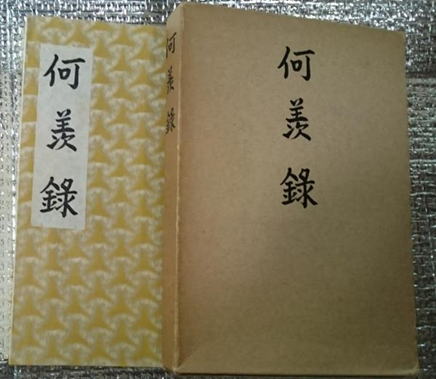 何羨錄
何羨錄
何羨錄